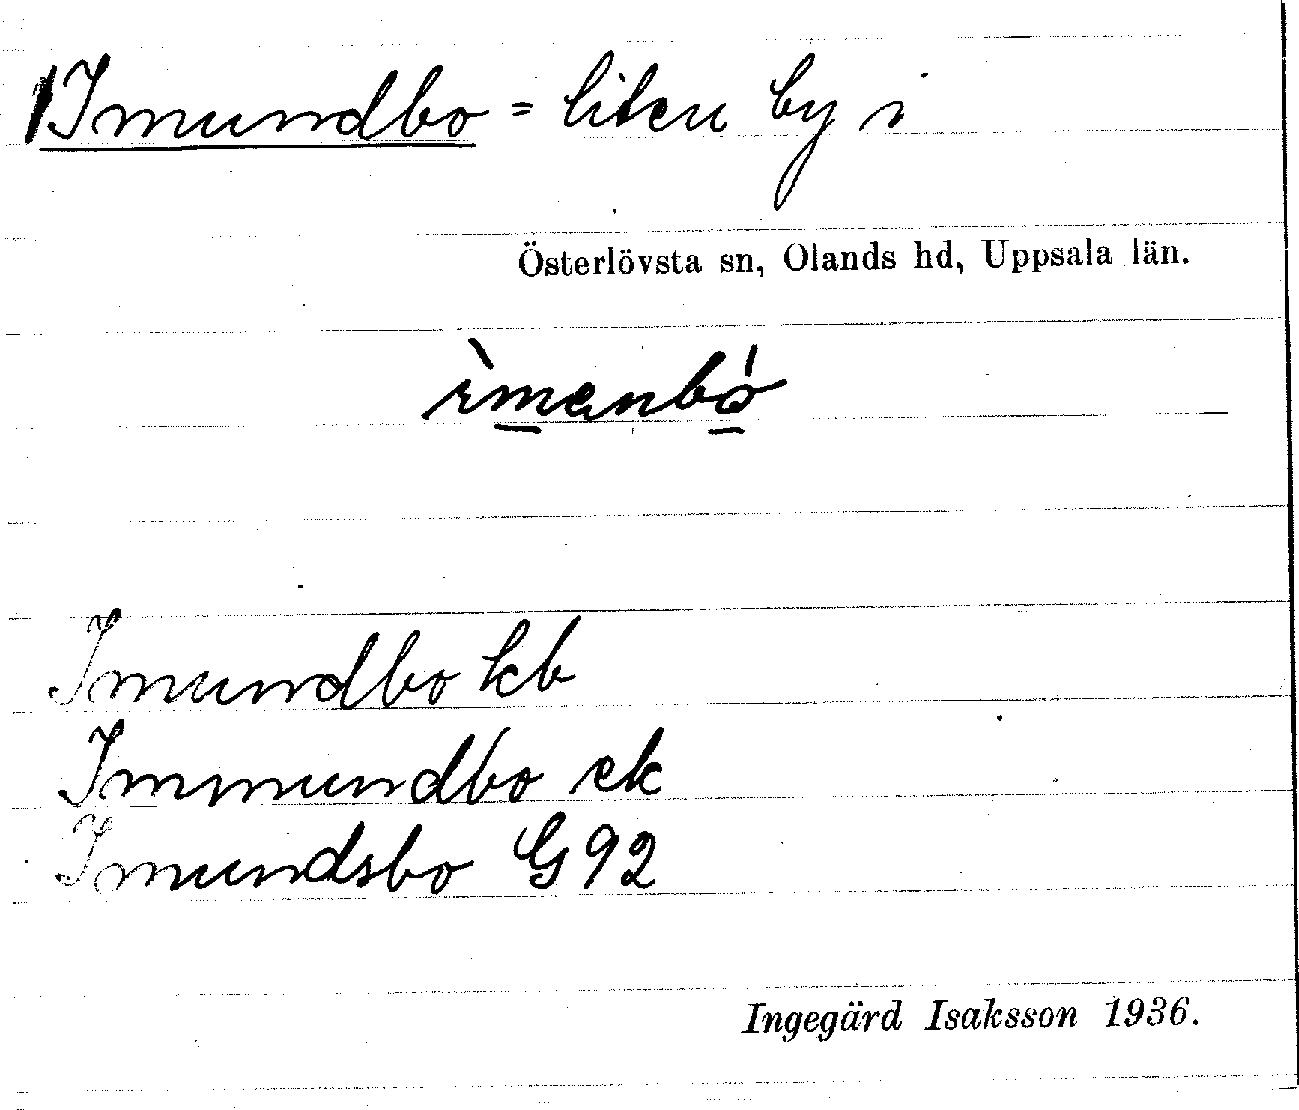 1) Imundbo = liten by i
Österlövsta sn, Olands hd, Uppsala län.
ìmanbó
Imundbo kb
Immundbo ek
Imundsbo G 92
Ingegärd Isaksson 1936.